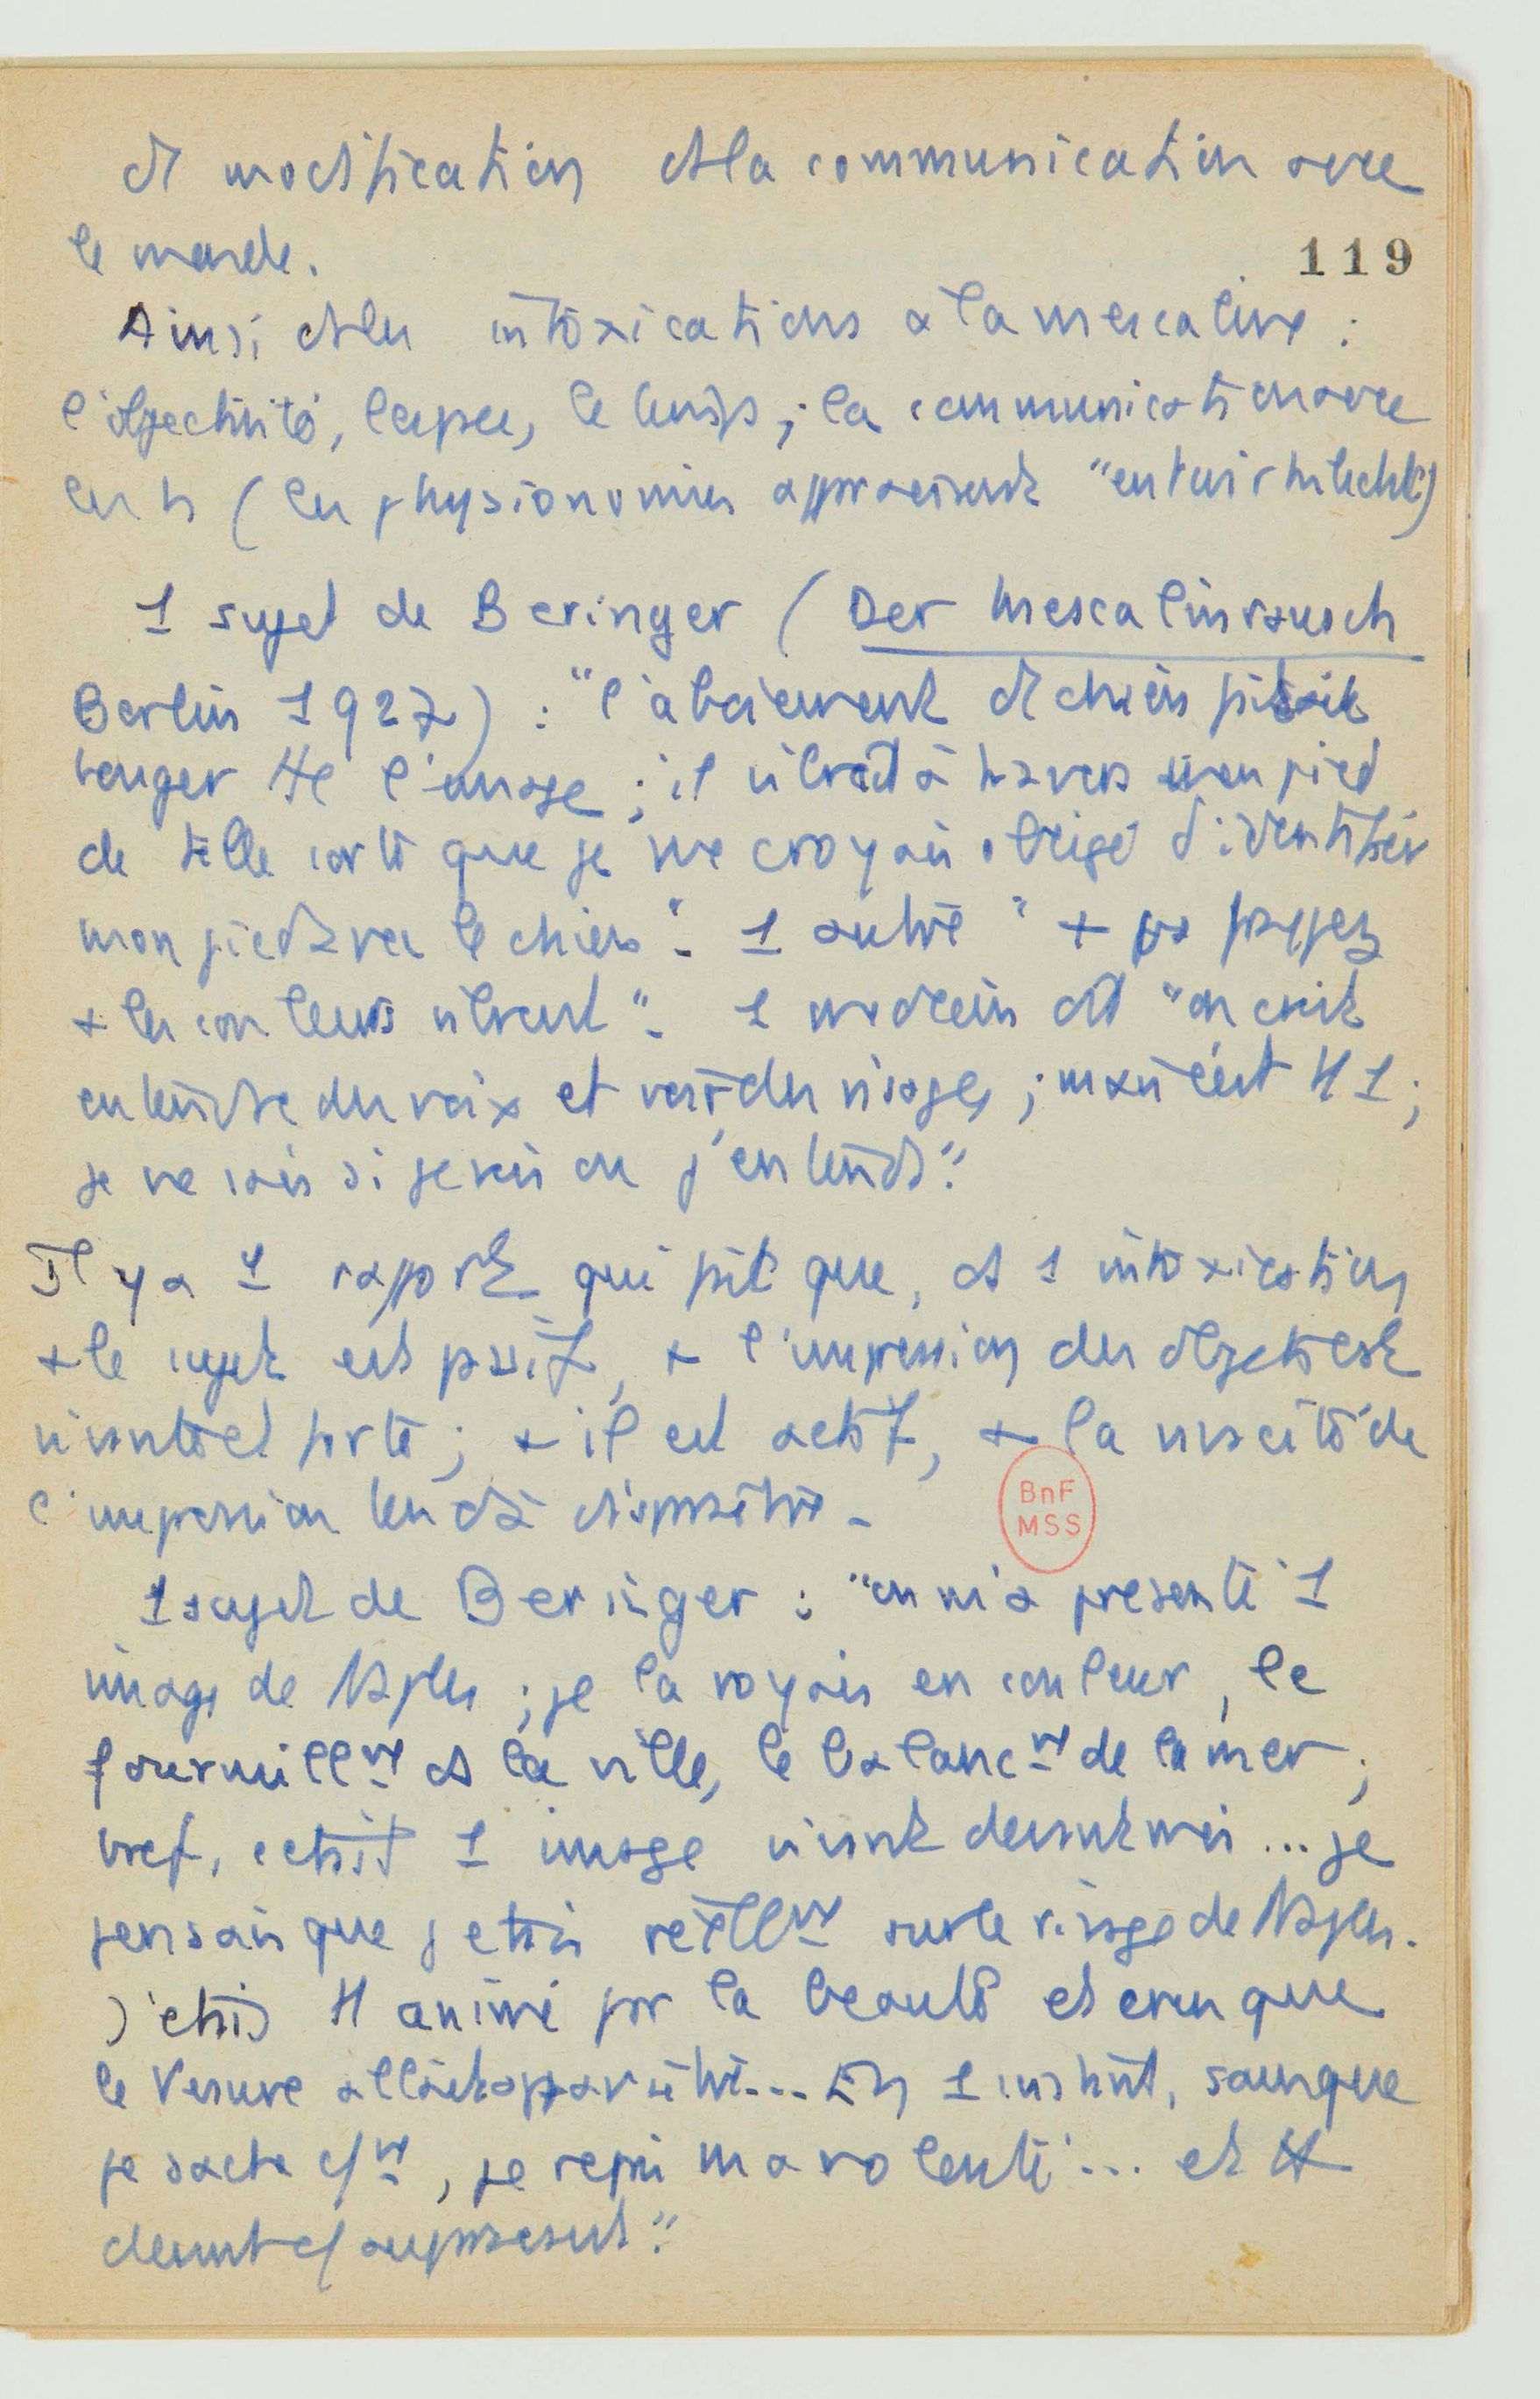 de modification ds la communication avec
le monde.
119
Ainsi ds les intoxications à la mescaline :
l'objectivité, l'espace, le temps ; la communication avec
les h (les physionomies apparaissent "
1 sujet de Beringer (Der Mescalinrausch
Berlin 1927) : "l'aboiement de chien faisait
bouger tt l'image ; il vibrait à travers mon pied
de telle sorte que je me croyais obligé d'identifier
mon pied avec le chien". 1 autre "+ on
+ les couleurs vibrent". 1 médecin dit "on croit
entendre des voix et voir des visages ; mais c'est tt 1 ;
je ne sais si je vois ou j'entends".
Il y a 1 rapport qui fait que, ds 1 intoxication
+ le sujet est passif, + l'impression des objets est
vivante et forte ; + il est actif, + la vivacité de
l'impression tend à disparaître.
1 sujet de Beringer : "on m'a présenté 1
image de Naples ; je la voyais en couleur, le
fourmillmt ds la ville, le balancmt de la mer ;
bref, c'était 1 image vivant devant moi ... je
pensais que j'étais réellmt sur le rivage de Naples.
J'étais tt animé par la beauté et cru que
le Vésuve allait apparaître... En 1 instant, sans que
je sache cmt, je repris ma volonté ... et tt
devint cf auparavant".
BnF
MSS